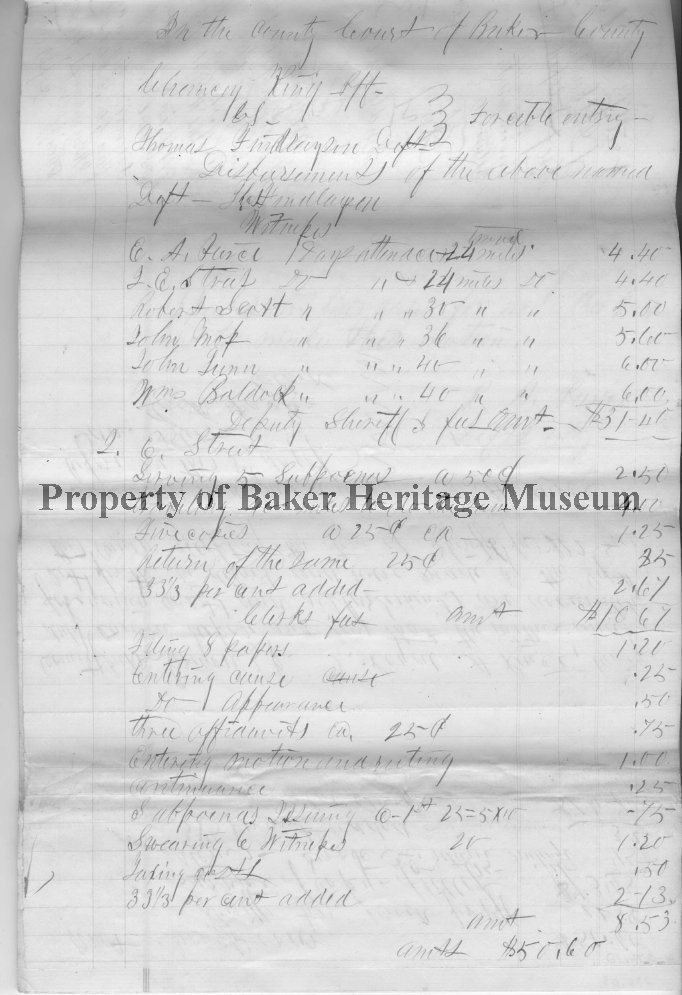 In the County Court of Baker County
Chauncey King Plff-
vs- } Forcible entry-
Thomas Findlayson Deft-
Disbursements of the above named
Deft- Findlayson
Witness
E. A. 1 Days attendce + 24 miles travel 4.40
Street Do " + 24 miles Do 4.40
Robert Scott " " " 30 " " 5.00
John Moss " " " 36 " " 5.60
John " " " 40 " " 6.00
Wms Baldock " " " 40 " " 6.00
Deputy Sheriff's fees Amt- $31.40
E. Street
Serving 5 Subpoenas @ 50¢ 2.50
Property of Baker Heritage Museum
4.00
Five copies @ 25¢ ea- 1.25
Return of the same 25¢ 25
33 1/3 per cent added- 2.67
Clerks fees amt $10.67
Filing 8 papers 1.20
Entering cause cause .25
Do Appearance .50
three affidavits ea. 25¢ .75
Entering motion and ruling 1.00
Continuance .25
Subpoenas Issuing 6-1st 25=5x10 .75
Swearing 6 Witness 20 1.20
Taxing costs .50
33 1/3 per cent added 2.13
amt. 8.53
amts $50.60